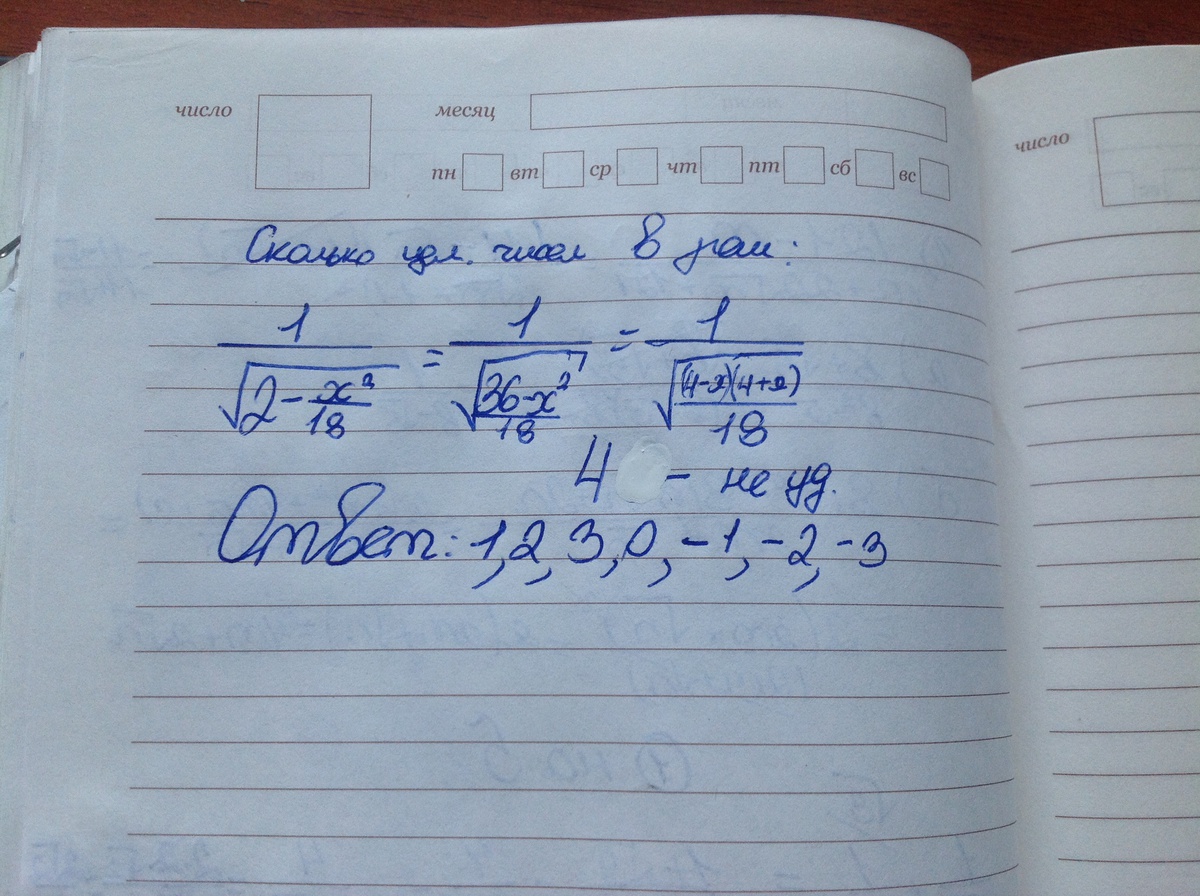 число месяц число
пн вт ср чт пт сб вс
Сколько цел. чисел в
1/√(2-x²/18) = 1/√((36-x²)/18) = 1/√((4-x)(4+x)/18)
4 - не уд.
Ответ: 1, 2, 3, 0, -1, -2, -3